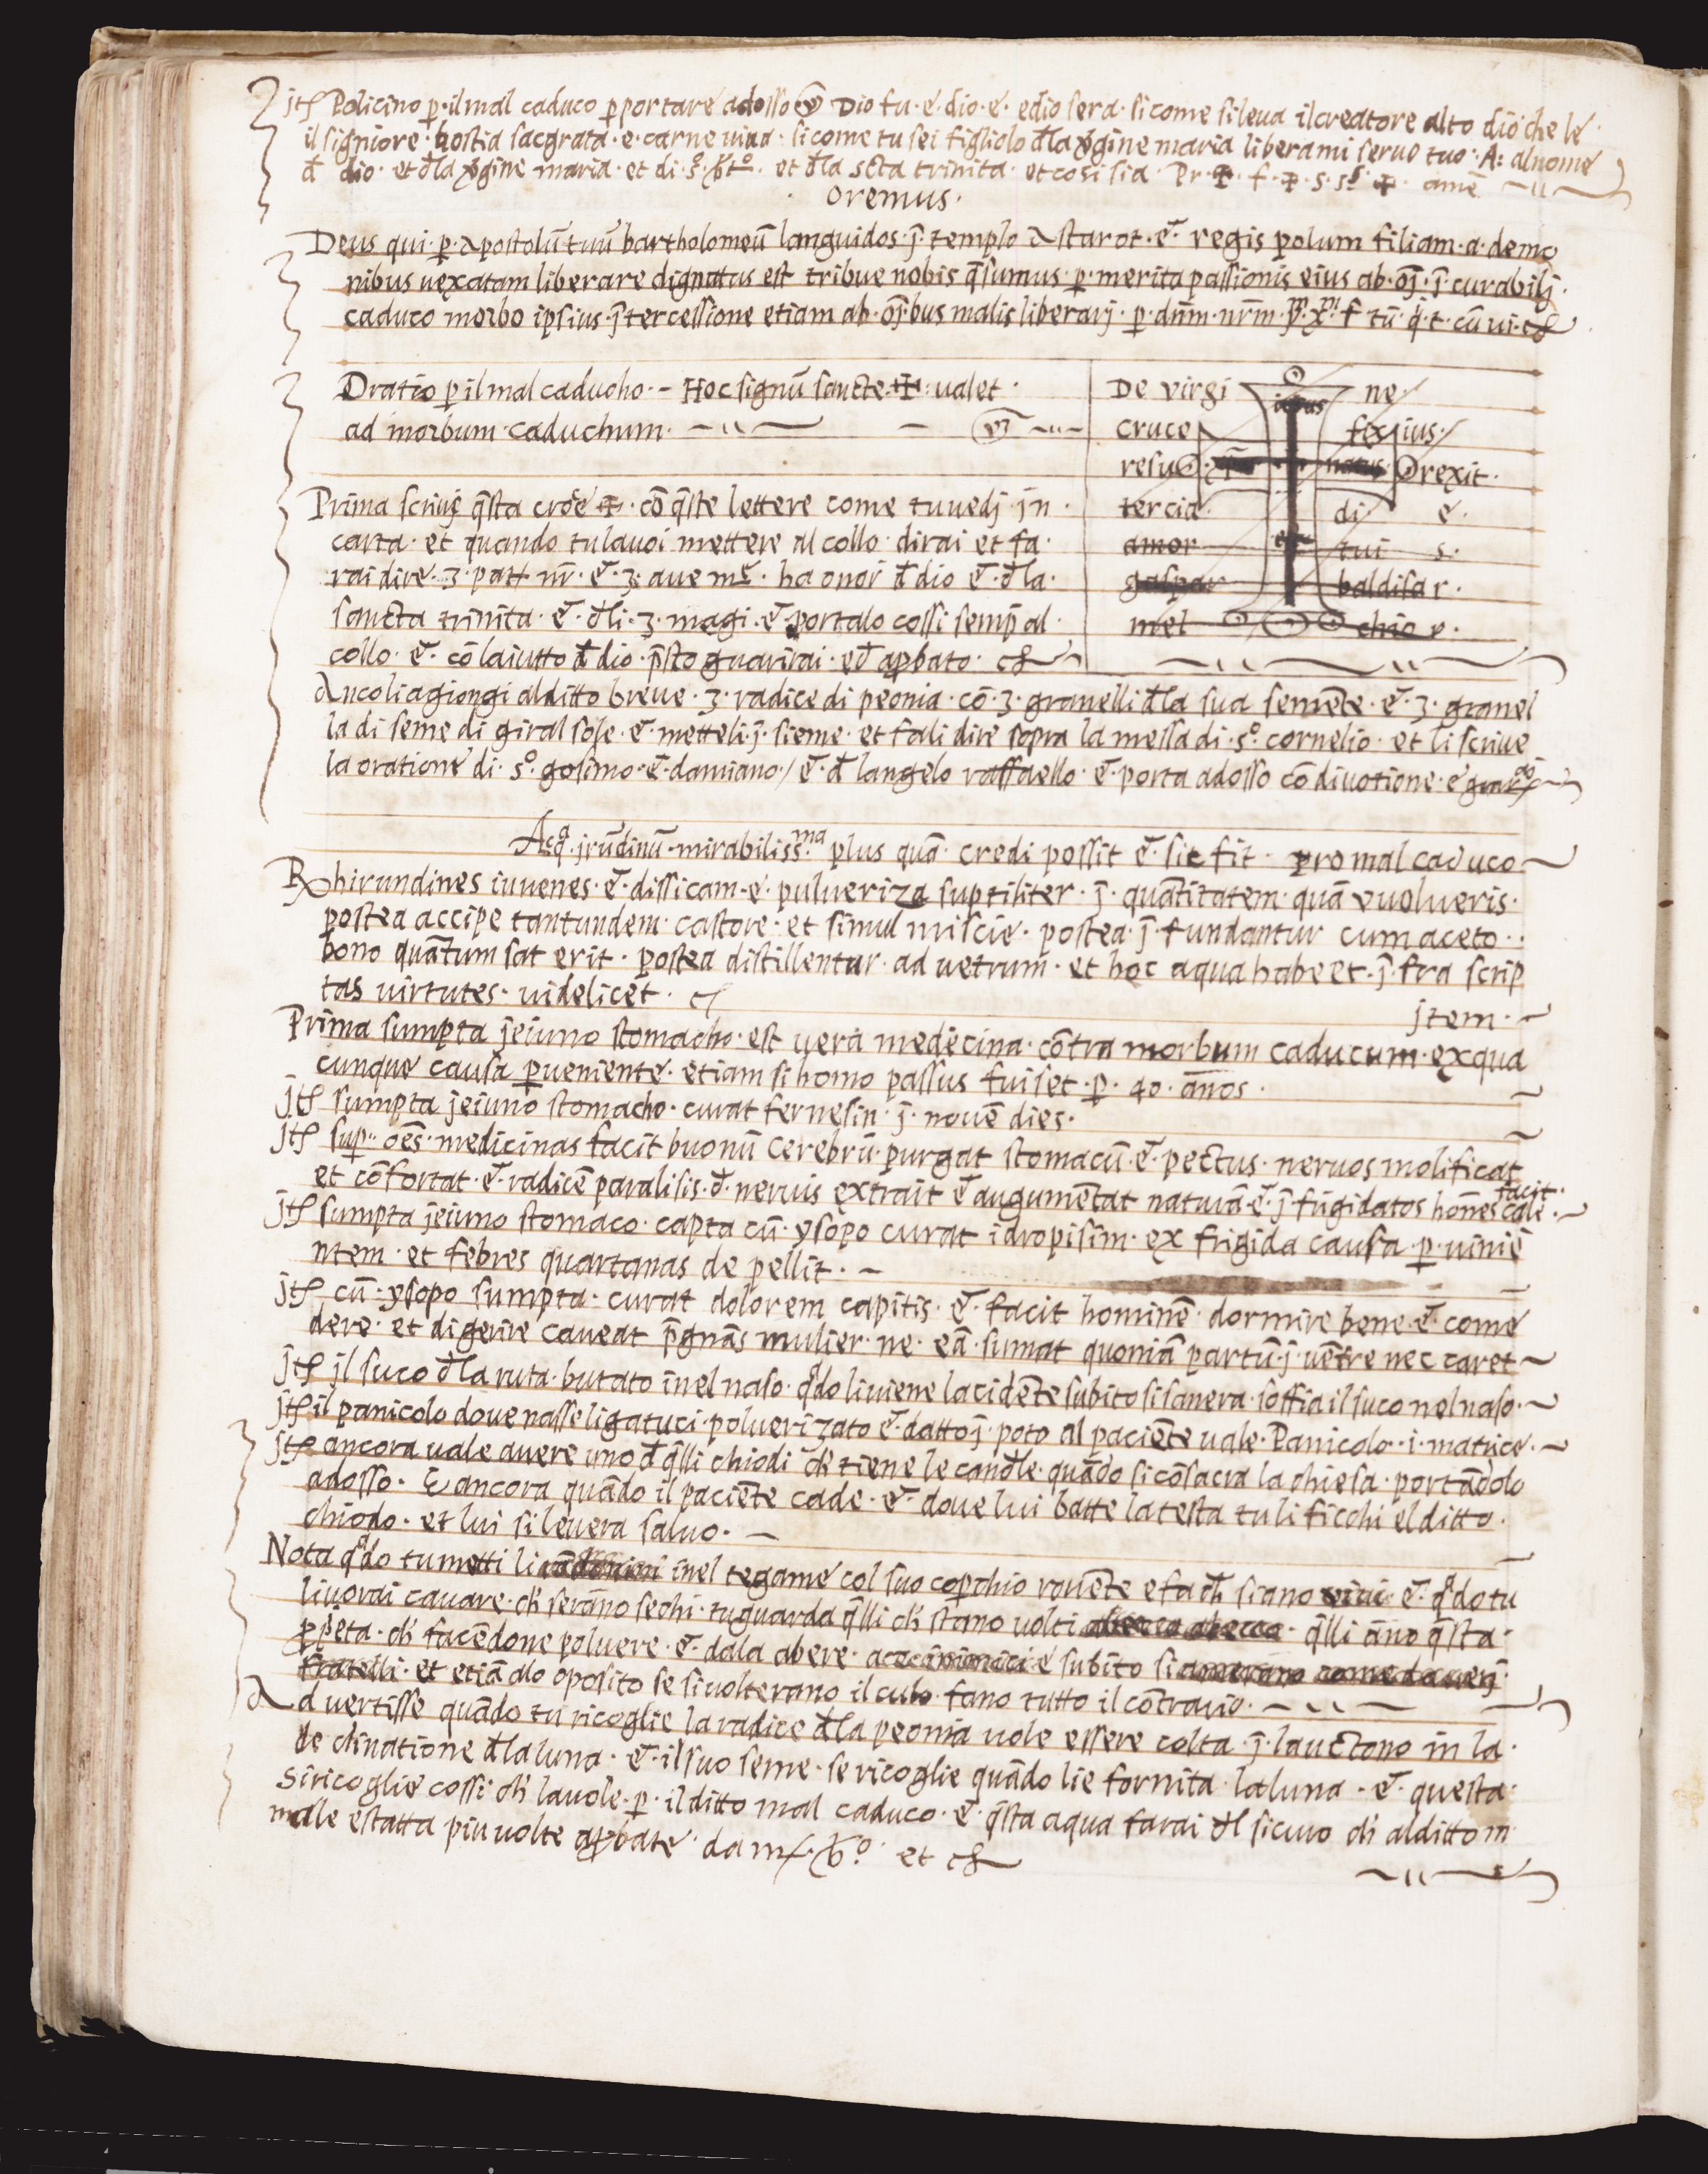 jtē Policino p il mal caduco p portare adosso Dio fu · e · dio · e · e dio sera · si come si leua il creatore alto dio che le
il signiore · hostia sacgrata · e · carne uiua · si come tu sei figliolo d̄la v̄gine maria liberami seruo tuo · A: al nome
d̄ dio · et d̄la v̄gine maria · et di · s.º · et d̄la scta trinita · et cosi sia · Pr · ✠ · f · ✠ · s · ss · ✠ · amē
oremus ·
Deus qui · p · apostolū tuū bartholomeū languidos · j̄ · templo astarot · et · regis polum filiam · a · demo
nibus uexatam liberare dignatus est tribue nobis q̄sumus · p · merita passionis eius ab · oj̄ · j̄ curabilj ·
caduco morbo ipsius · j̄tercessione etiam ab · oj̄bus malis liberarj · p · dnm̄ · nrm̄ · f tū · q · t · cū ui ·
Oratio p il mal caducho · – Hoc signū sancte · ✠ · ualet ·
ad morbum · caduchum ·
Prima scriuj q̄sta croce ✠ · cō q̄ste lettere come tu uedj jn ·
carta · et quando tu la uoi mettere al collo · dirai et fa ·
rai dire · 3 · patr nr̄ · et · 3 · aue mē · ha onor d̄ dio et · d̄la ·
sancta trinita · et · d̄li · 3 · magi · et portalo cossi semp̄ al ·
collo · et · cō laiutto d̄ dio · p̄sto guarirai · ed̄ apbato ·
De virgi ne
cruce fixius ·
resu natus · rexit ·
tercia · di e ·
amor est tui s ·
gaspar baldisar ·
mel chior ·
Ancoli agiongi al ditto breue · 3 · radice di peonia · cō · 3 · granelli d̄la sua semēte · et · 3 · granel
la di seme di giral sole · et · metteli · j̄ · sieme · et fali dire sopra la messa di · s.º cornelio · et li scriue
la oratione di · s.º gosimo · et · damiano / et · d̄ langelo raffaello · et · porta adosso cō diuotione · e
Acq̄ · jrūdinū · mirabiliss.ma plus quā · credi possit et · sic fit · pro mal caduco
℞ hirundines iuuenes · et · dissicam · e · pulueriza suptiliter · j̄ · quātitatem · quā vuolueris ·
postea accipe tantundem · castore · et simul miscie · postea · j̄ · fundantur cum aceto · ·
bono quātum sat erit · postea distillentur · ad uetrum · et hoc aqua habeet · j̄ · fra scrip
tas uirtutes · uidelicet ·
jtem ·
Prima sumpta jeiuno stomacho · est vera medecina · cōtra morbum caducum · ex qua
cunque causa pueniente · etiam si homo passus fuiset · p · 40 · annos ·
jtē sumpta jeiuno stomacho · curat fernesin · j̄ · nouē dies ·
jtē sup · oēs · medicinas facit buonū cerebrū · purgat stomacū · et · pectus · neruos molificat
et cōfortat · et · radicē paralisis · d̄ · neruis extrait et augumētat naturā · et · j̄ frigidatos hoēs cale facit ·
jtē sumpta jeiuno stomaco · capta cū · ysopo curat idropisim · ex frigida causa · p · uiniē
ntem · et febres quartanas de pellit · –
jtē cū · ysopo sumpta · curat dolorem capitis · et · facit hominē · dormire bene · et · come
dere · et digerire caueat p̄gnās mulier · ne · eā · sumat quoniā partū · j̄ · uētre nec caret
jtē jl suco d̄la ruta · butato inel naso · qdo li uiene lacidēte subito si sanera · soffia il suco nel naso ·
jtē il panicolo doue nasse li gatuci · poluerizato et · datto j̄ · poto al paciēte uale · Panicolo · i · matrice ·
jtē ancora uale auere uno d̄ q̄lli chiodi ch̄ tiene le candle · quādo si cōsacra la chiesa · portādolo
adosso · E ancora quādo il paciēte cade · et · doue lui batte la testa tu li ficchi el ditto ·
chiodo · et lui si leuera saluo · –
Nota qdo tu metti li inel tegame col suo copchio rouēte e fa ch̄ siano uiui · et · qdo tu
li uorai cauare · ch̄ serāno sechi · tu guarda q̄lli ch̄ stano uolti · q̄lli āno q̄sta ·
ppeta · ch̄ facēdone poluere · et · dala abere · e subito si
fratelli · et etiā alo oposito se si uolterano il culo · fano tutto il cōtrario ·
Aduertisse quādo tu ricoglie la radice d̄la peonia uole essere colta · j̄ · lauctono in la ·
de clinatione d̄la luna · et · il suo seme · se ricoglie quādo lie fornita · la luna · et · questa ·
si ricoglie cossi · ch̄ la uole · p · il ditto mal caduco · et · q̄sta aqua farai d̄l sicuro ch̄ al ditto m
male e statta piu uolte apbate · da m · et